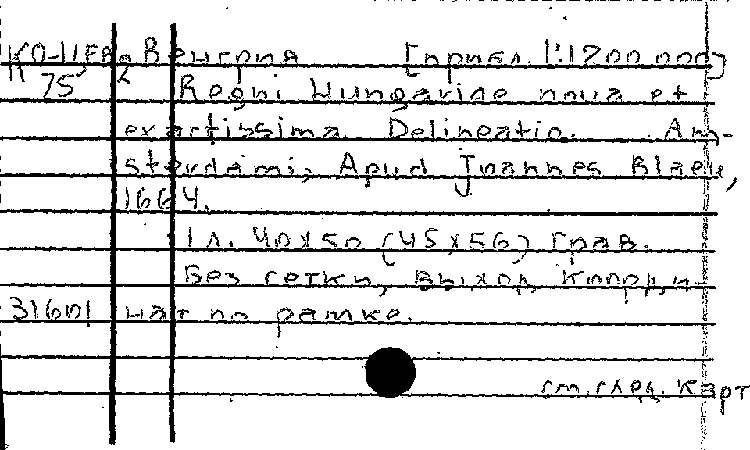 Венгрия [прибл. 1:1200 000]
75 Regni Hungariae nova et
exactissima Delineatio. Am-
sterdami, Apud Joannes Blaeu,
1664.
1 л. 40x50 (45x56) Грав.
Без сетки, выход. координ
31601 нат по рамке.
см. след. карт